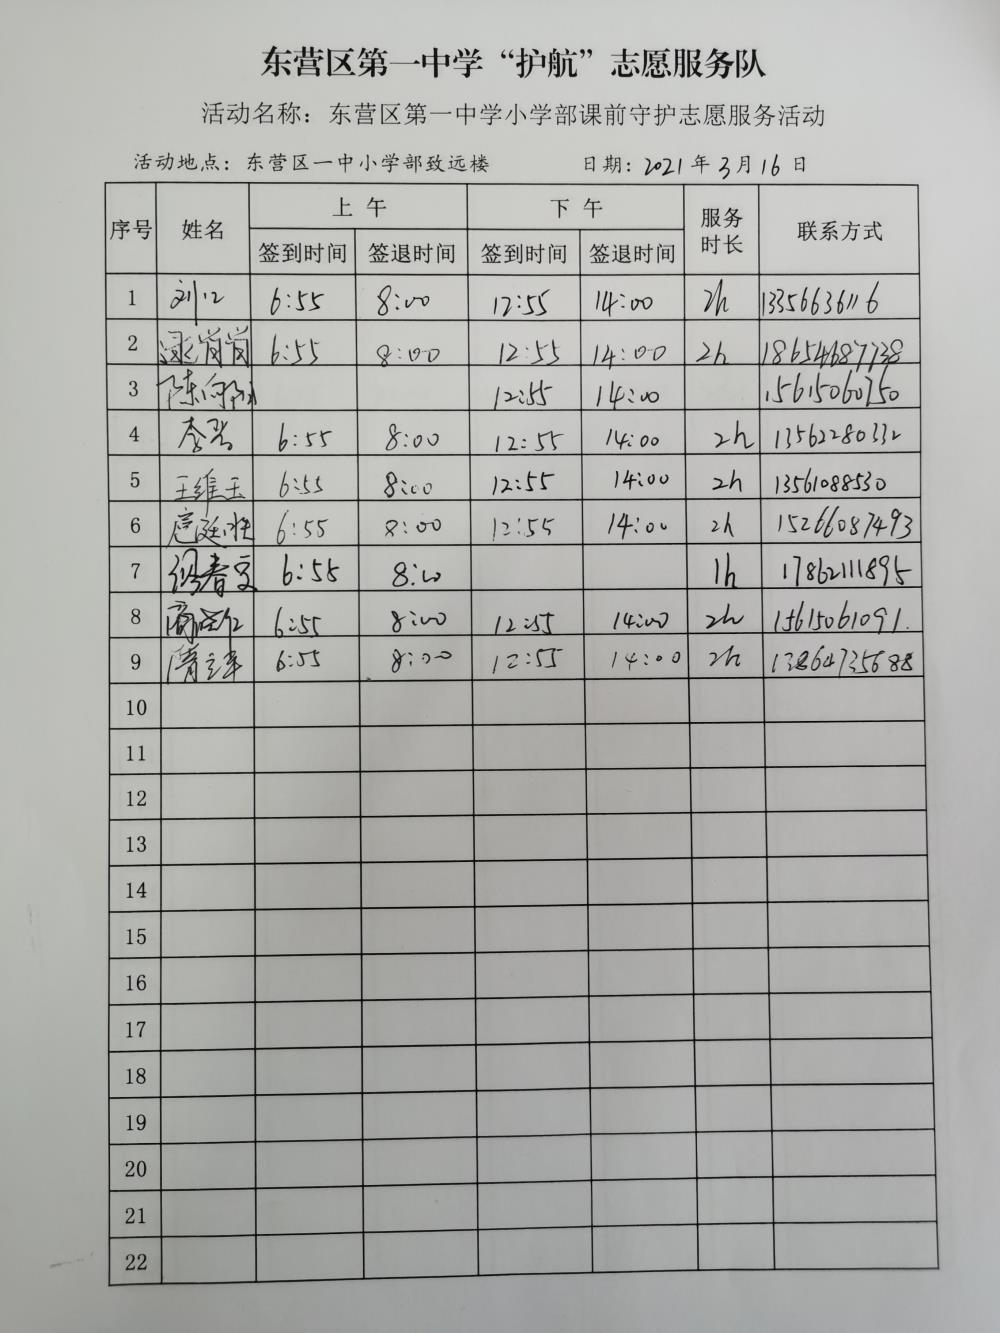 东营区第一中学“护航”志愿服务队
活动名称：东营区第一中学小学部课前守护志愿服务活动
活动地点：东营区一中小学部致远楼 日期：2021年3月16日
序号 姓名 上午 下午 服务时长 联系方式
签到时间 签退时间 签到时间 签退时间
1 6:55 8:00 12:55 14:00 2h 13356636116
2 6:55 8:00 12:55 14:00 2h 18654687738
3 12:55 14:00 15615060750
4 6:55 8:00 12:55 14:00 2h 13562280332
5 王维玉 6:55 8:00 12:55 14:00 2h 13561088530
6 6:55 8:00 12:55 14:00 2h 15266087493
7 6:55 8:00 1h 17862111895
8 6:55 8:00 12:55 14:00 2h 15615061091.
9 6:55 8:00 12:55 14:00 2h 13864735688
10
11
12
13
14
15
16
17
18
19
20
21
22